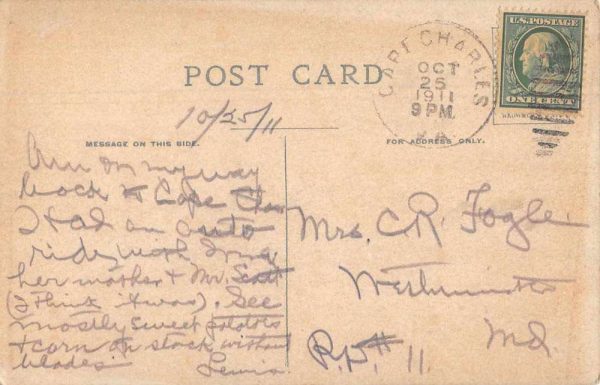 CAPE CHARLES
OCT
25
1911
9 PM
VA.
U.S. POSTAGE
ONE CENT
POST CARD
10/25/11
MESSAGE ON THIS SIDE.
FOR ADDRESS ONLY.
Am on my way
back to Cape Chas
I had an auto
ride with
her mother & Mr. Scott
(I think it was). See
mostly sweet potatoes
& corn on stock without
blades. Lewis
Mrs. C. R. Fogle
Westminster
Md
R.D.# 11.